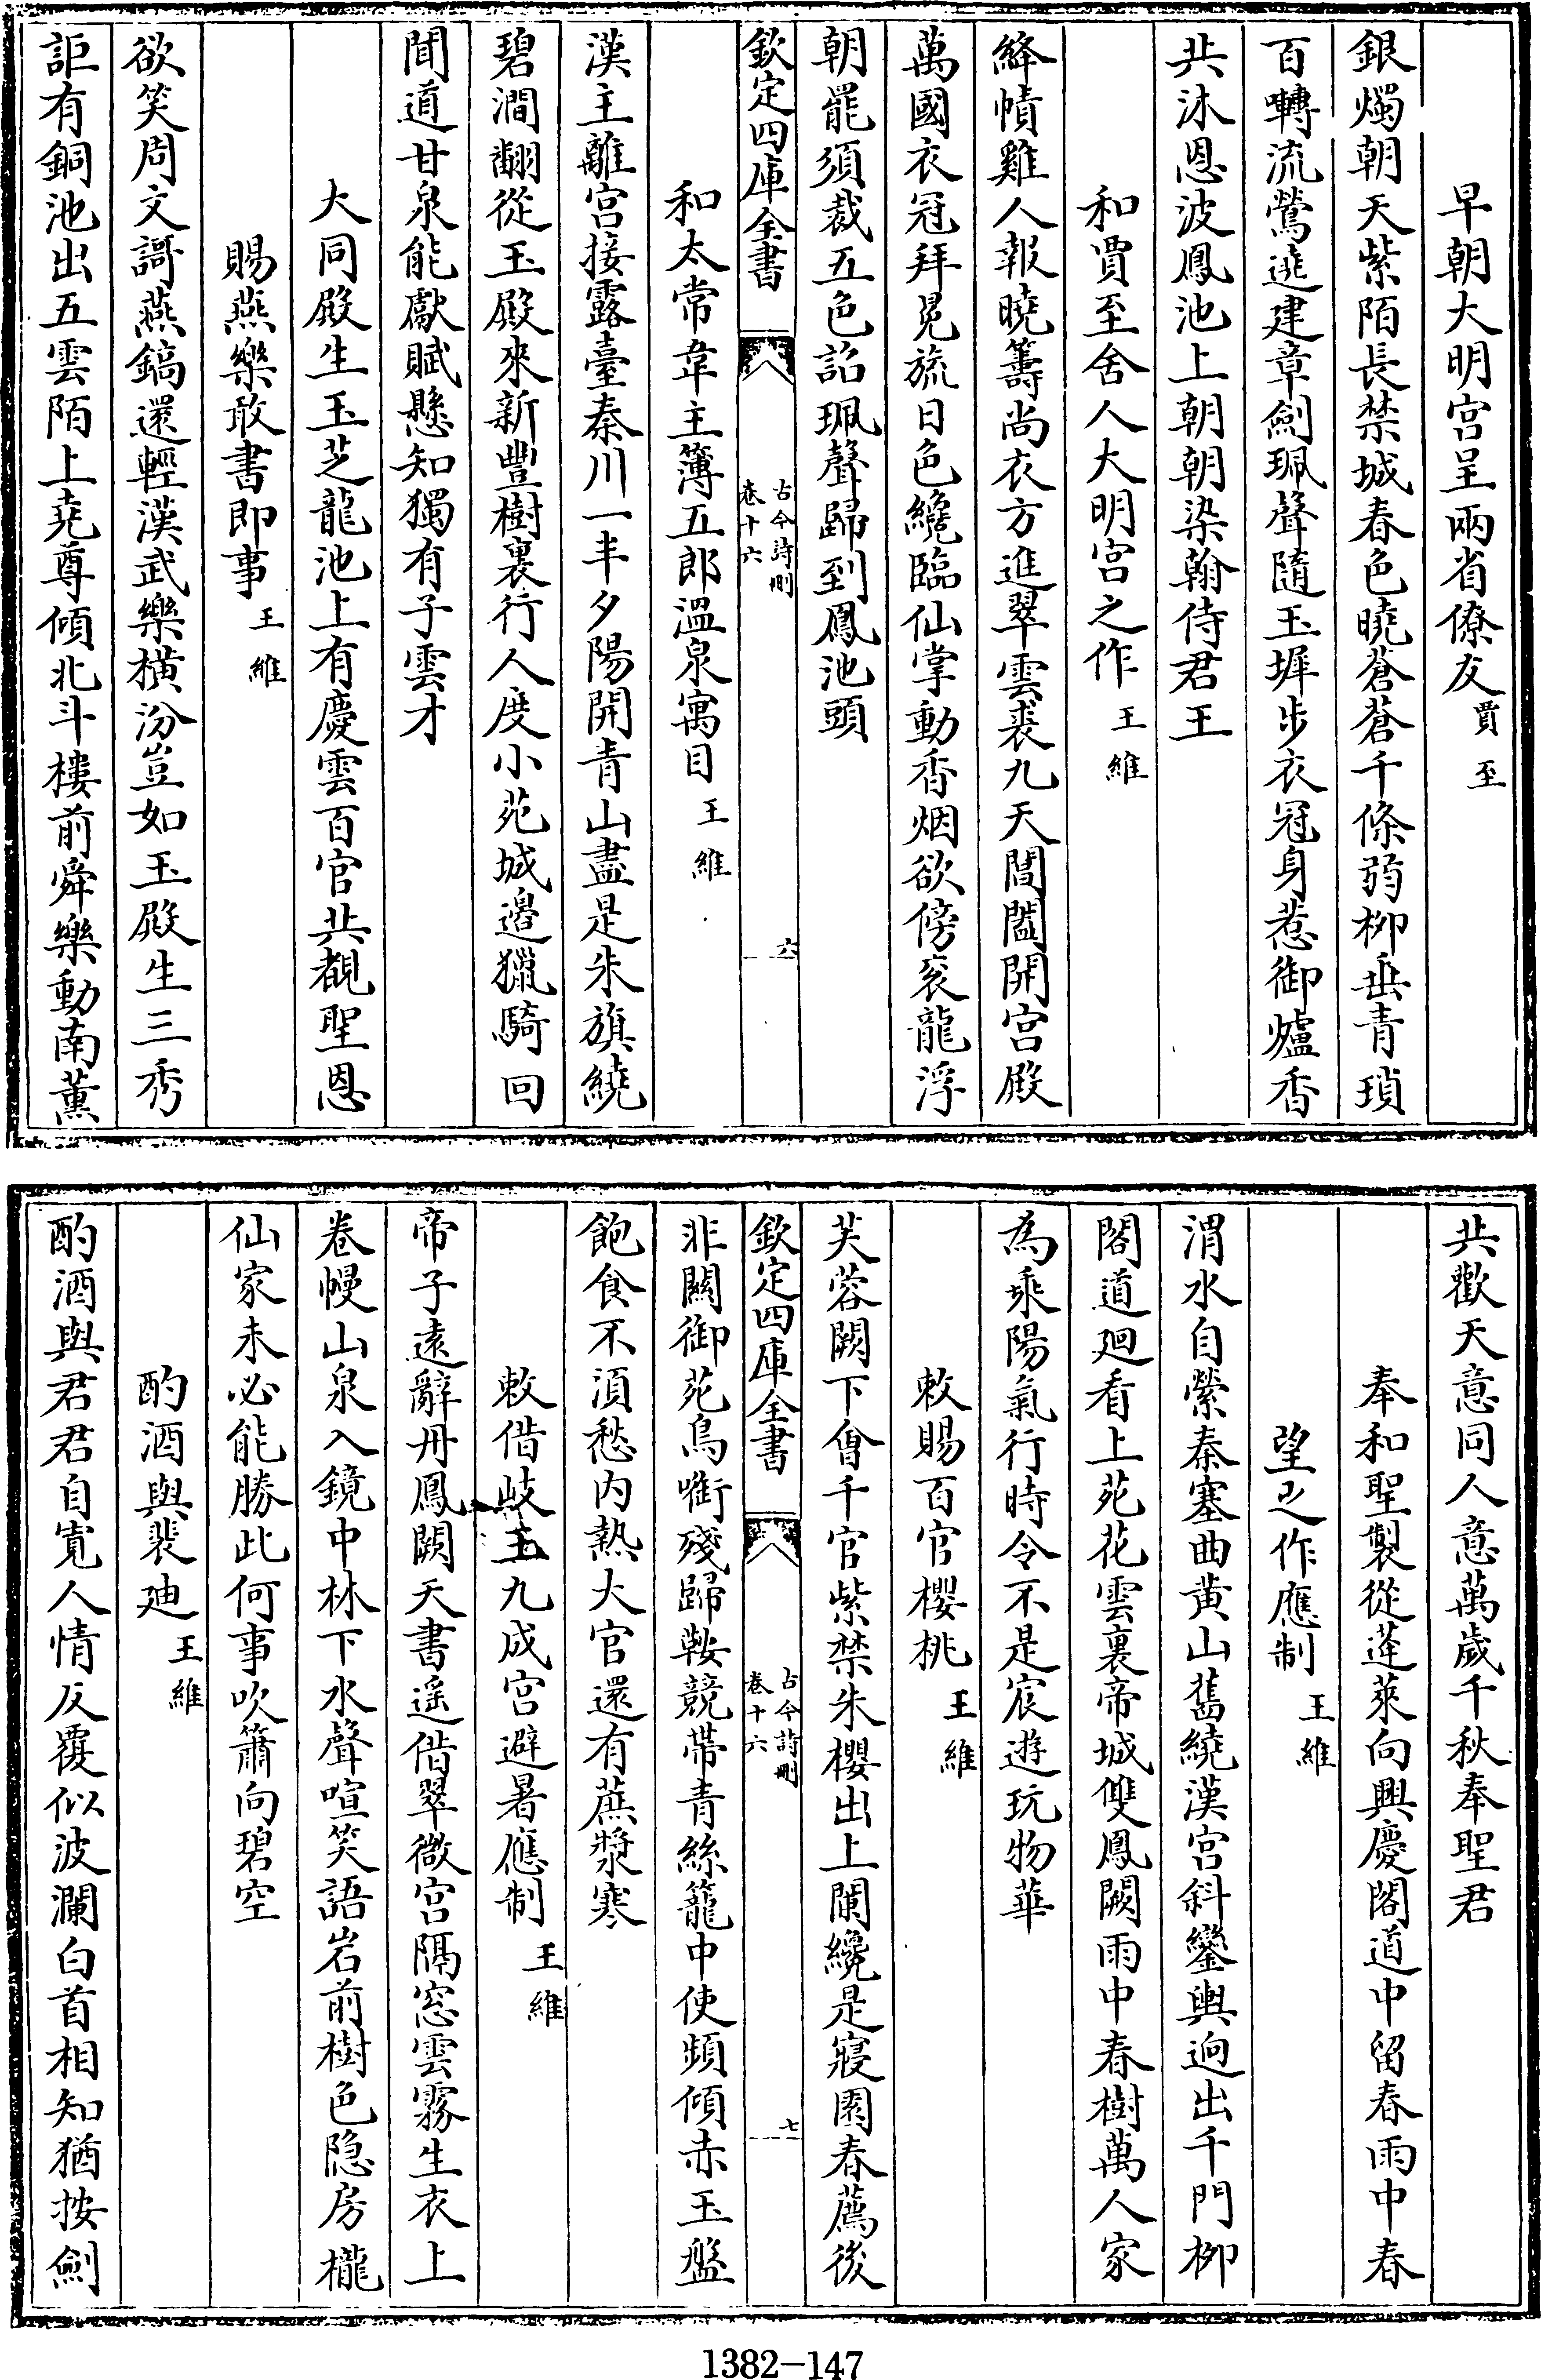 早朝大明宫呈兩省僚友賈至
銀燭朝天紫陌長禁城春色曉蒼蒼千條弱栁垂青瑣
百囀流鶯遶建章劍珮聲隨玉墀步衣冠身惹御爐香
共沐恩波鳳池上朝朝染翰侍君王
和賈至舍人大明宫之作王維
絳幘雞人報曉籌尚衣方進翠雲裘九天閶闔開宫殿
萬國衣冠拜冕旒日色纔臨仙掌動香烟欲傍衮龍浮
朝罷須裁五色詔珮聲歸到鳳池頭
欽定四庫全書
古今詩刪
卷十六
六
和太常韋主簿五郎溫泉寓目王維
漢主離宫接露臺秦川一半夕陽開青山盡是朱旗繞
碧澗翻從玉殿來新豐樹裏行人度小苑城邊獵騎回
聞道甘泉能獻賦懸知獨有子雲才
大同殿生玉芝龍池上有慶雲百官共覩聖恩
賜燕樂敢書即事王維
欲笑周文謌燕鎬還輕漢武樂横汾豈如玉殿生三秀
詎有銅池出五雲陌上堯尊傾北斗樓前舜樂動南薰
共歡天意同人意萬歲千秋奉聖君
奉和聖製從蓬萊向興慶閣道中留春雨中春
望之作應制王維
渭水自縈秦塞曲黄山舊繞漢宫斜鑾輿逈出千門栁
閣道廻看上苑花雲裏帝城雙鳳闕雨中春樹萬人家
為乘陽氣行時令不是宸遊玩物華
敕賜百官櫻桃王維
芙蓉闕下會千官紫禁朱櫻出上闌纔是寢園春薦後
欽定四庫全書
古今詩刪
卷十六
七
非關御苑鳥啣殘歸鞍競帶青絲籠中使頻傾赤玉盤
飽食不須愁内熱大官還有蔗漿寒
敕借岐王九成宫避暑應制王維
帝子遠辭丹鳳闕天書遥借翠微宫隔窓雲霧生衣上
卷幔山泉入鏡中林下水聲喧笑語岩前樹色隐房櫳
仙家未必能勝此何事吹簫向碧空
酌酒與裴廸王維
酌酒與君君自寛人情反覆似波瀾白首相知猶按劍
1382-147